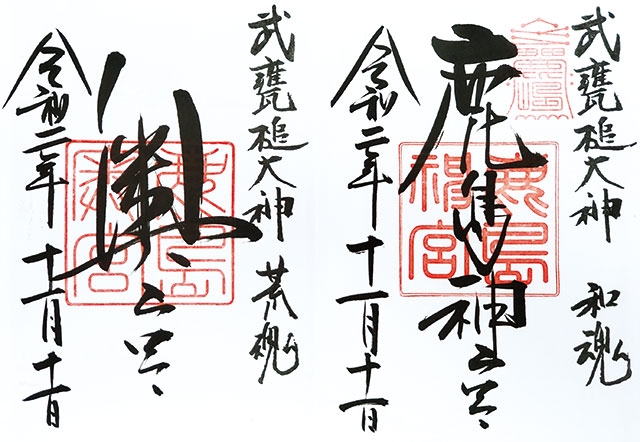 武甕槌大神 和魂
鹿島神宮
鹿島神宮
令和二年 十一月十一日
武甕槌大神 荒魂
奥宮
鹿島奥宮
令和二年 十一月十一日